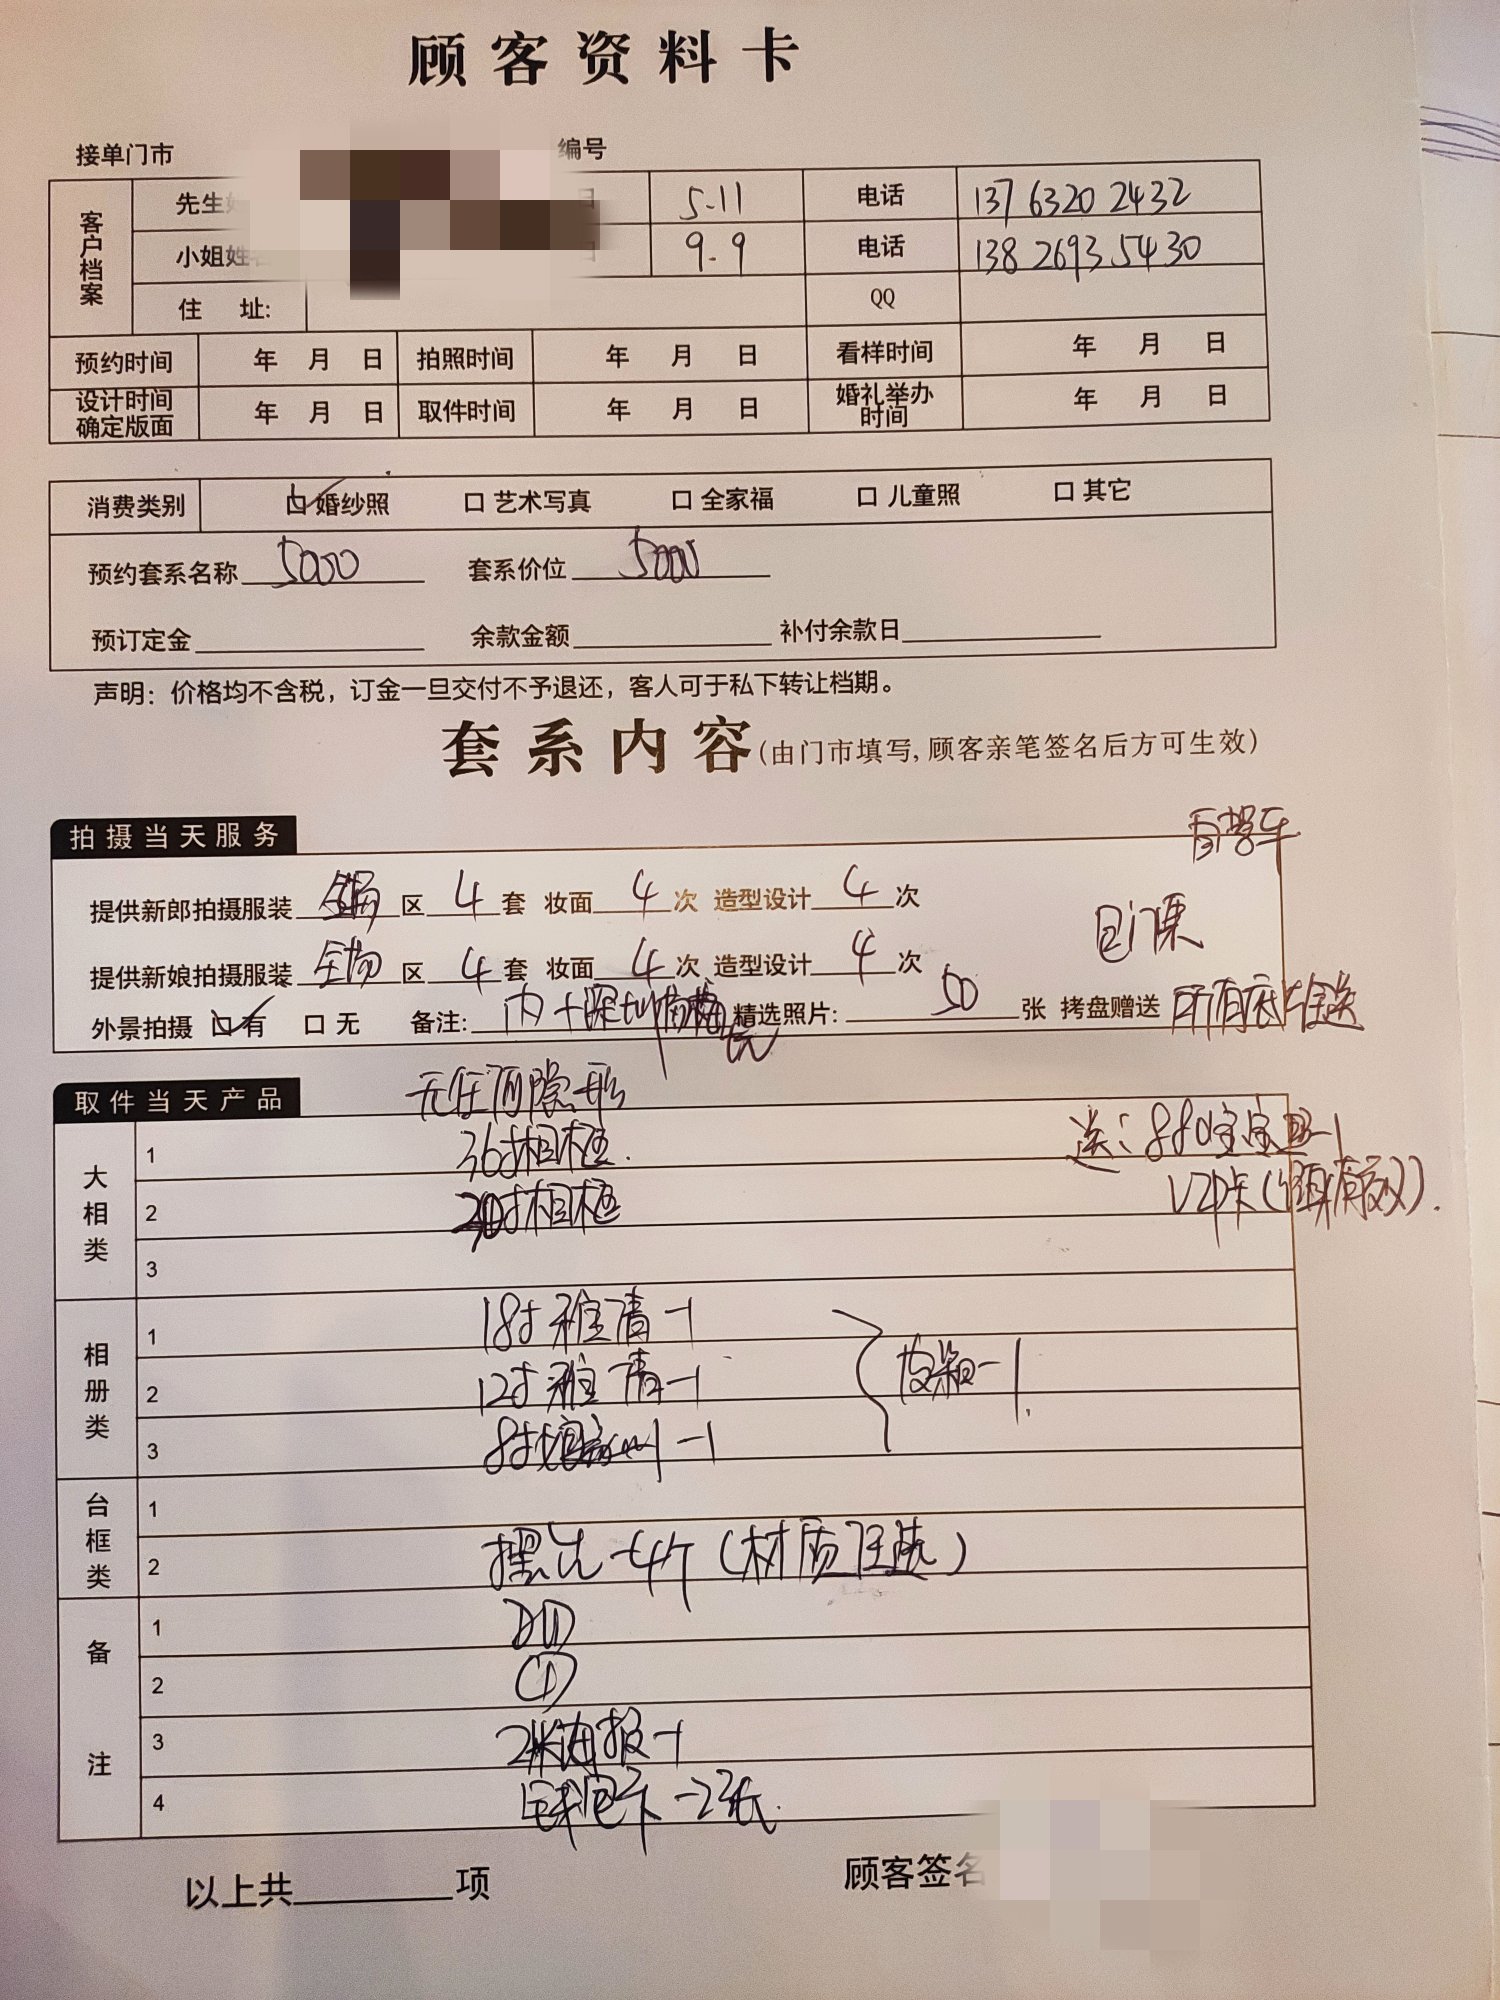 顾客资料卡
接单门市 编号
客户档案 先生 5.11 电话 137 6320 2432
小姐姓 9.9 电话 138 2693 5430
住 址: QQ
预约时间 年 月 日 拍照时间 年 月 日 看样时间 年 月 日
设计时间确定版面 年 月 日 取件时间 年 月 日 婚礼举办时间 年 月 日
消费类别 婚纱照 艺术写真 全家福 儿童照 其它
预约套系名称 5000 套系价位 5000
预订定金 余款金额 补付余款日
声明：价格均不含税，订金一旦交付不予退还，客人可于私下转让档期。
套系内容(由门市填写,顾客亲笔签名后方可生效)
拍摄当天服务
包门票
提供新郎拍摄服装 全场 区 4 套 妆面 4 次 造型设计 4 次
提供新娘拍摄服装 全场 区 4 套 妆面 4 次 造型设计 4 次
外景拍摄 有 无 备注: 内+深圳 精选照片: 50 张 拷盘赠送 所有底片全送
取件当天产品
无任何隐形
大相类
1 36寸相框
2 寸相框
3
送: 宝宝照-1
相册类
1 18寸雅清-1
2 12寸雅清-1
3 8寸 -1
皮箱-1
台框类
1
2 摆台-4个(材质任选)
备注
1
2
3 2米海报-1
4 钱包卡-2张
以上共 项 顾客签名